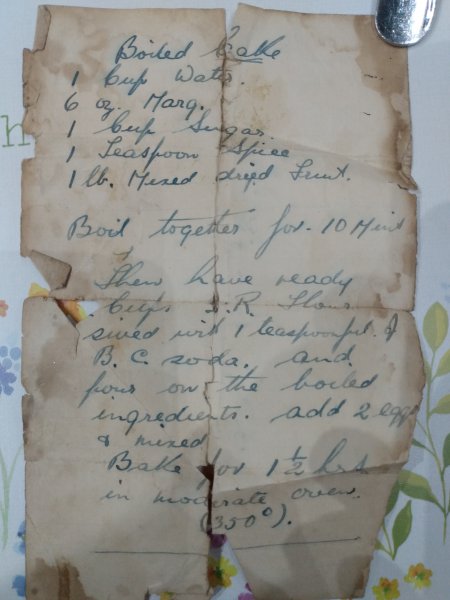 Boiled Cake
1 Cup Water.
6 oz. Marg.
1 Cup Sugar.
1 Teaspoon Spice
1 lb. Mixed dried Fruit.
Boil together for 10 Mins
Then have ready
Cups S.R. Flour
sived with 1 teaspoonful of
B. C. soda. and
pour on the boiled
ingredients. add 2 eggs
& mixed
Bake for 1 1/2 hrs
in moderate oven.
(350°).